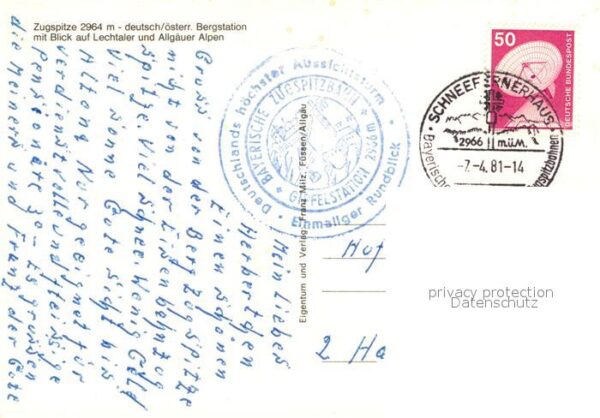 Zugspitze 2964 m - deutsch/österr. Bergstation
mit Blick auf Lechtaler und Allgäuer Alpen
Mein lieber
Herbert den
einen schönen
Gruss von der Zugspitze
mit der Bergbahn
Spitze viel Schnee wenig Geld
viel Sonne Gute Sicht bis
Nur geeignet für
verdienstvolle und fleissige
Pensionäre Es grüssen
die Meinen und Franz der Gute
Deutschlands höchster Aussichtsturm
Einmaliger Rundblick
BAYERISCHE ZUGSPITZBAHN
GIPFELSTATION 2966m
Eigentum und Verlag: Franz Milz, Füssen/Allgäu
50
DEUTSCHE BUNDESPOST
SCHNEEFERNERHAUS
2966 m.ü.M.
-7.-4.81-14
Hof
2 Ha
privacy protection
Datenschutz